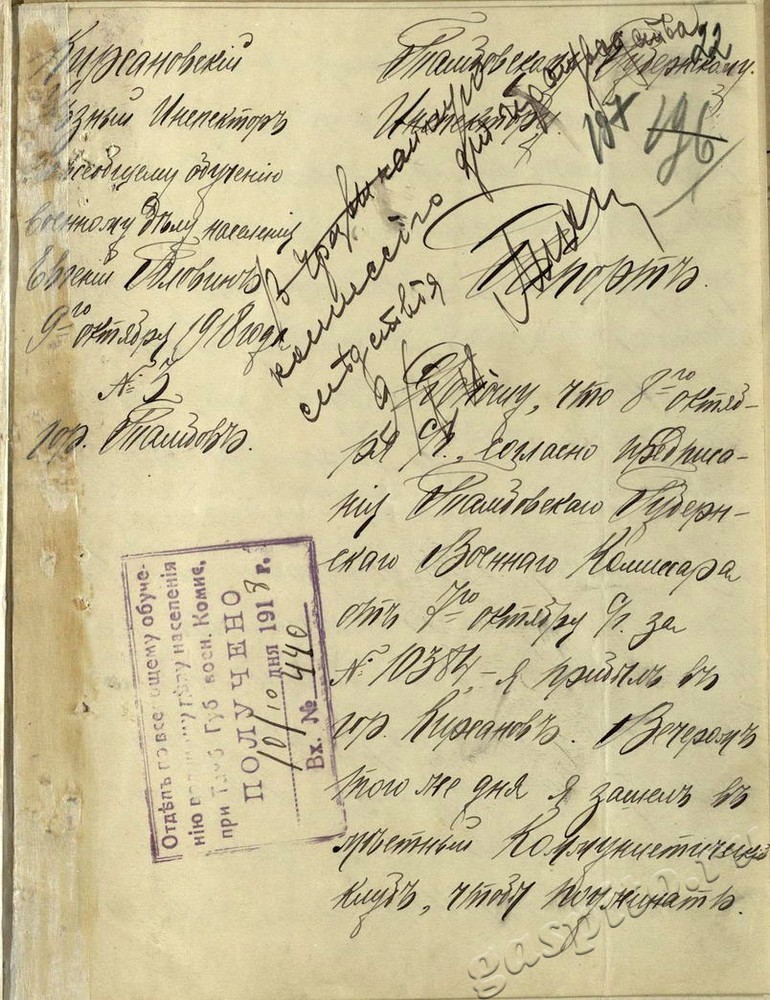 22
Кирсановскій
ѣздный Инспекторъ
всеобщему обученію
военному дѣлу населенія
Евгеній Головинъ
9-го октября 1918 года
№ 5
гор. Тамбовъ.
Тамбовскому Губернскому
Инспектору
196
Рапортъ.
В Чрезвычайную
комиссію для
слѣдствія
Доношу, что 8-го октяб-
ря с/г., согласно предписа-
нія Тамбовскаго Губерн-
скаго Военнаго Комиссара
отъ 7-го октября с/г. за
№ 10384, – я прибылъ въ
гор. Кирсановъ. Вечеромъ
того же дня я зашелъ въ
мѣстный Коммунистическій
клубъ, чтобы поужинать.
Отдѣлъ по всеобщему обуче-
нію военному дѣлу населенія
при Тамб. Губ. воен. Комис.
ПОЛУЧЕНО
10/10 дня 1918 г.
Вх. № 440
gaspito.ru